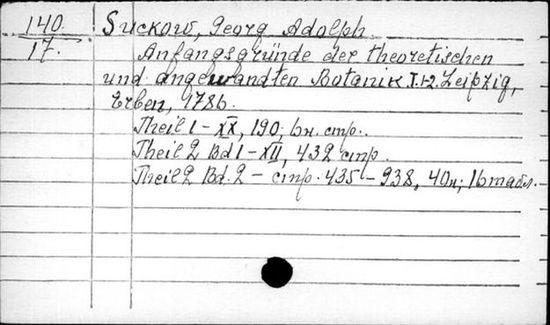 140 Suckow, Georg Adolph.
17. Anfangsgründe der theoretischen
und angewandten Botanik T.1-2. Leipzig,
Erben, 1786.
Theil 1 - XX, 190; 6н. стр..
Theil 2 Bd 1 - XII, 432 стр.
Theil 2 Bd. 2 - стр. 435-938, 40н; 16 табл.